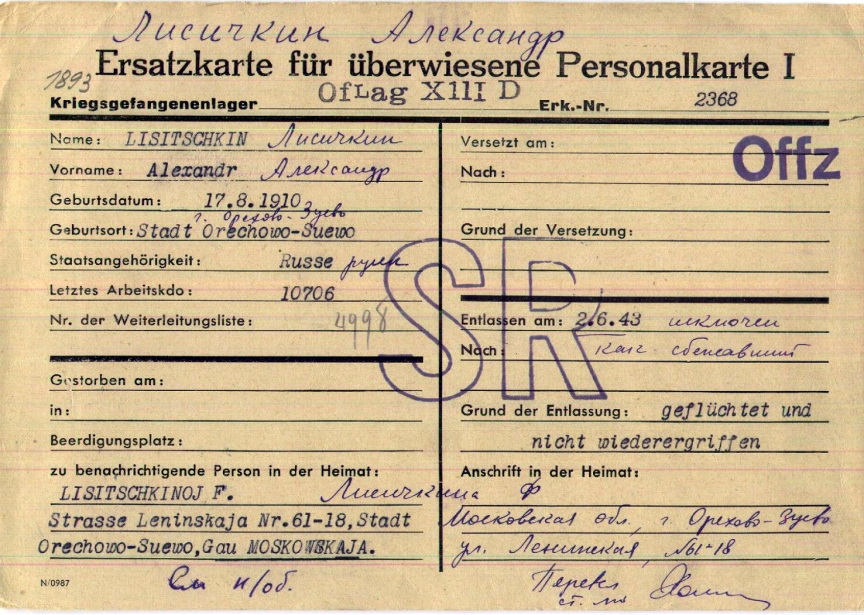 Лисичкин Александр
1893
Ersatzkarte für überwiesene Personalkarte I
Kriegsgefangenenlager OfLag XIII D Erk.-Nr. 2368
Name: LISITSCHKIN Лисичкин
Vorname: Alexandr Александр
Geburtsdatum: 17.8.1910
г. Орехово-Зуево
Geburtsort: Stadt Orechowo-Suewo
Staatsangehörigkeit: Russe
Letztes Arbeitskdo: 10706
Nr. der Weiterleitungsliste: 4998
Gestorben am:
in:
Beerdigungsplatz:
zu benachrichtigende Person in der Heimat:
LISITSCHKINOJ F. Лисичкина Ф
Strasse Leninskaja Nr.61-18, Stadt
Orechowo-Suewo, Gau MOSKOWSKAJA.
N/0987
См н/об.
Versetzt am:
Offz
Nach:
Grund der Versetzung:
SR
Entlassen am: 2.6.43 исключен
Nach: как сбежавший
Grund der Entlassung: geflüchtet und
nicht wiederergriffen
Anschrift in der Heimat:
Московская обл., г. Орехово-Зуево
ул. Ленинская, №61-18
Перевел